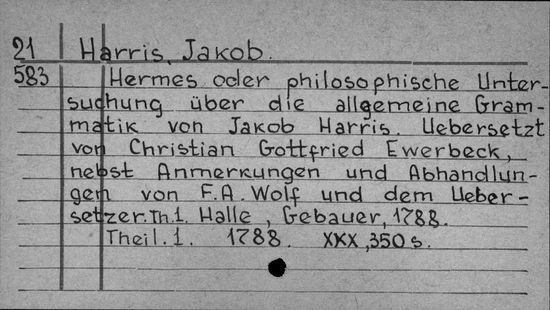 21 Harris, Jakob.
583 Hermes oder philosophische Unter-
suchung über die allgemeine Gram-
matik von Jakob Harris. Uebersetzt
von Christian Gottfried Ewerbeck,
nebst Anmerkungen und Abhandlun-
gen von F.A. Wolf und dem Ueber-
setzer. Th.1. Halle, Gebauer, 1788.
Theil. 1. 1788. XXX, 350 s.